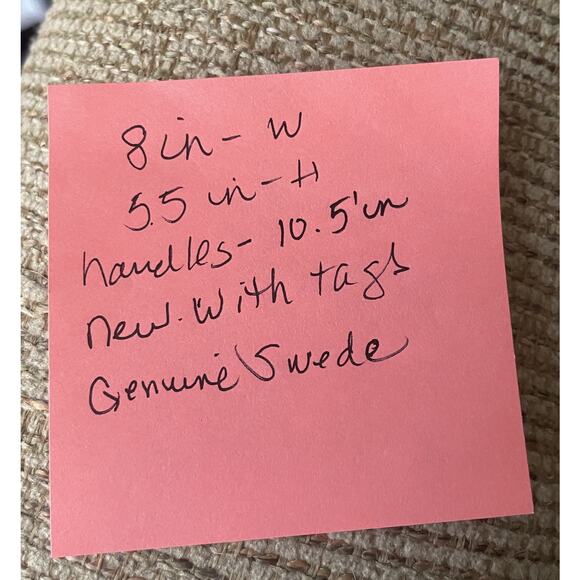 8 in - W
5.5 in - H
handles - 10.5 in
new. With tags
Genuine Swede